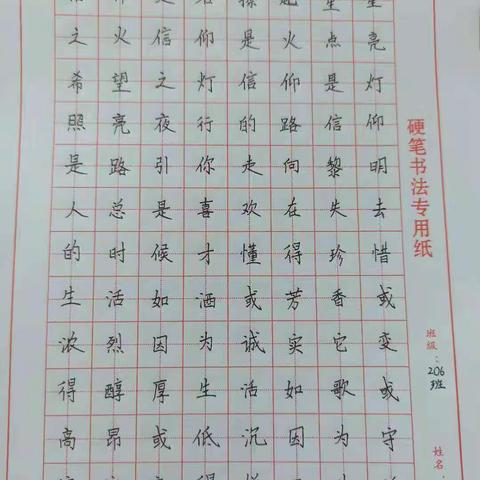 之火信仰是火点亮
希望之灯信仰是灯
照亮夜行的路信仰
是路引你走向黎明
人总是喜欢在失去
的时候才懂得珍惜
生活如洒或芳香或
浓烈因为诚实它变
得醇厚生活如歌或
高昂或低沉因为守
硬笔书法专用纸
班级：206班
姓名：